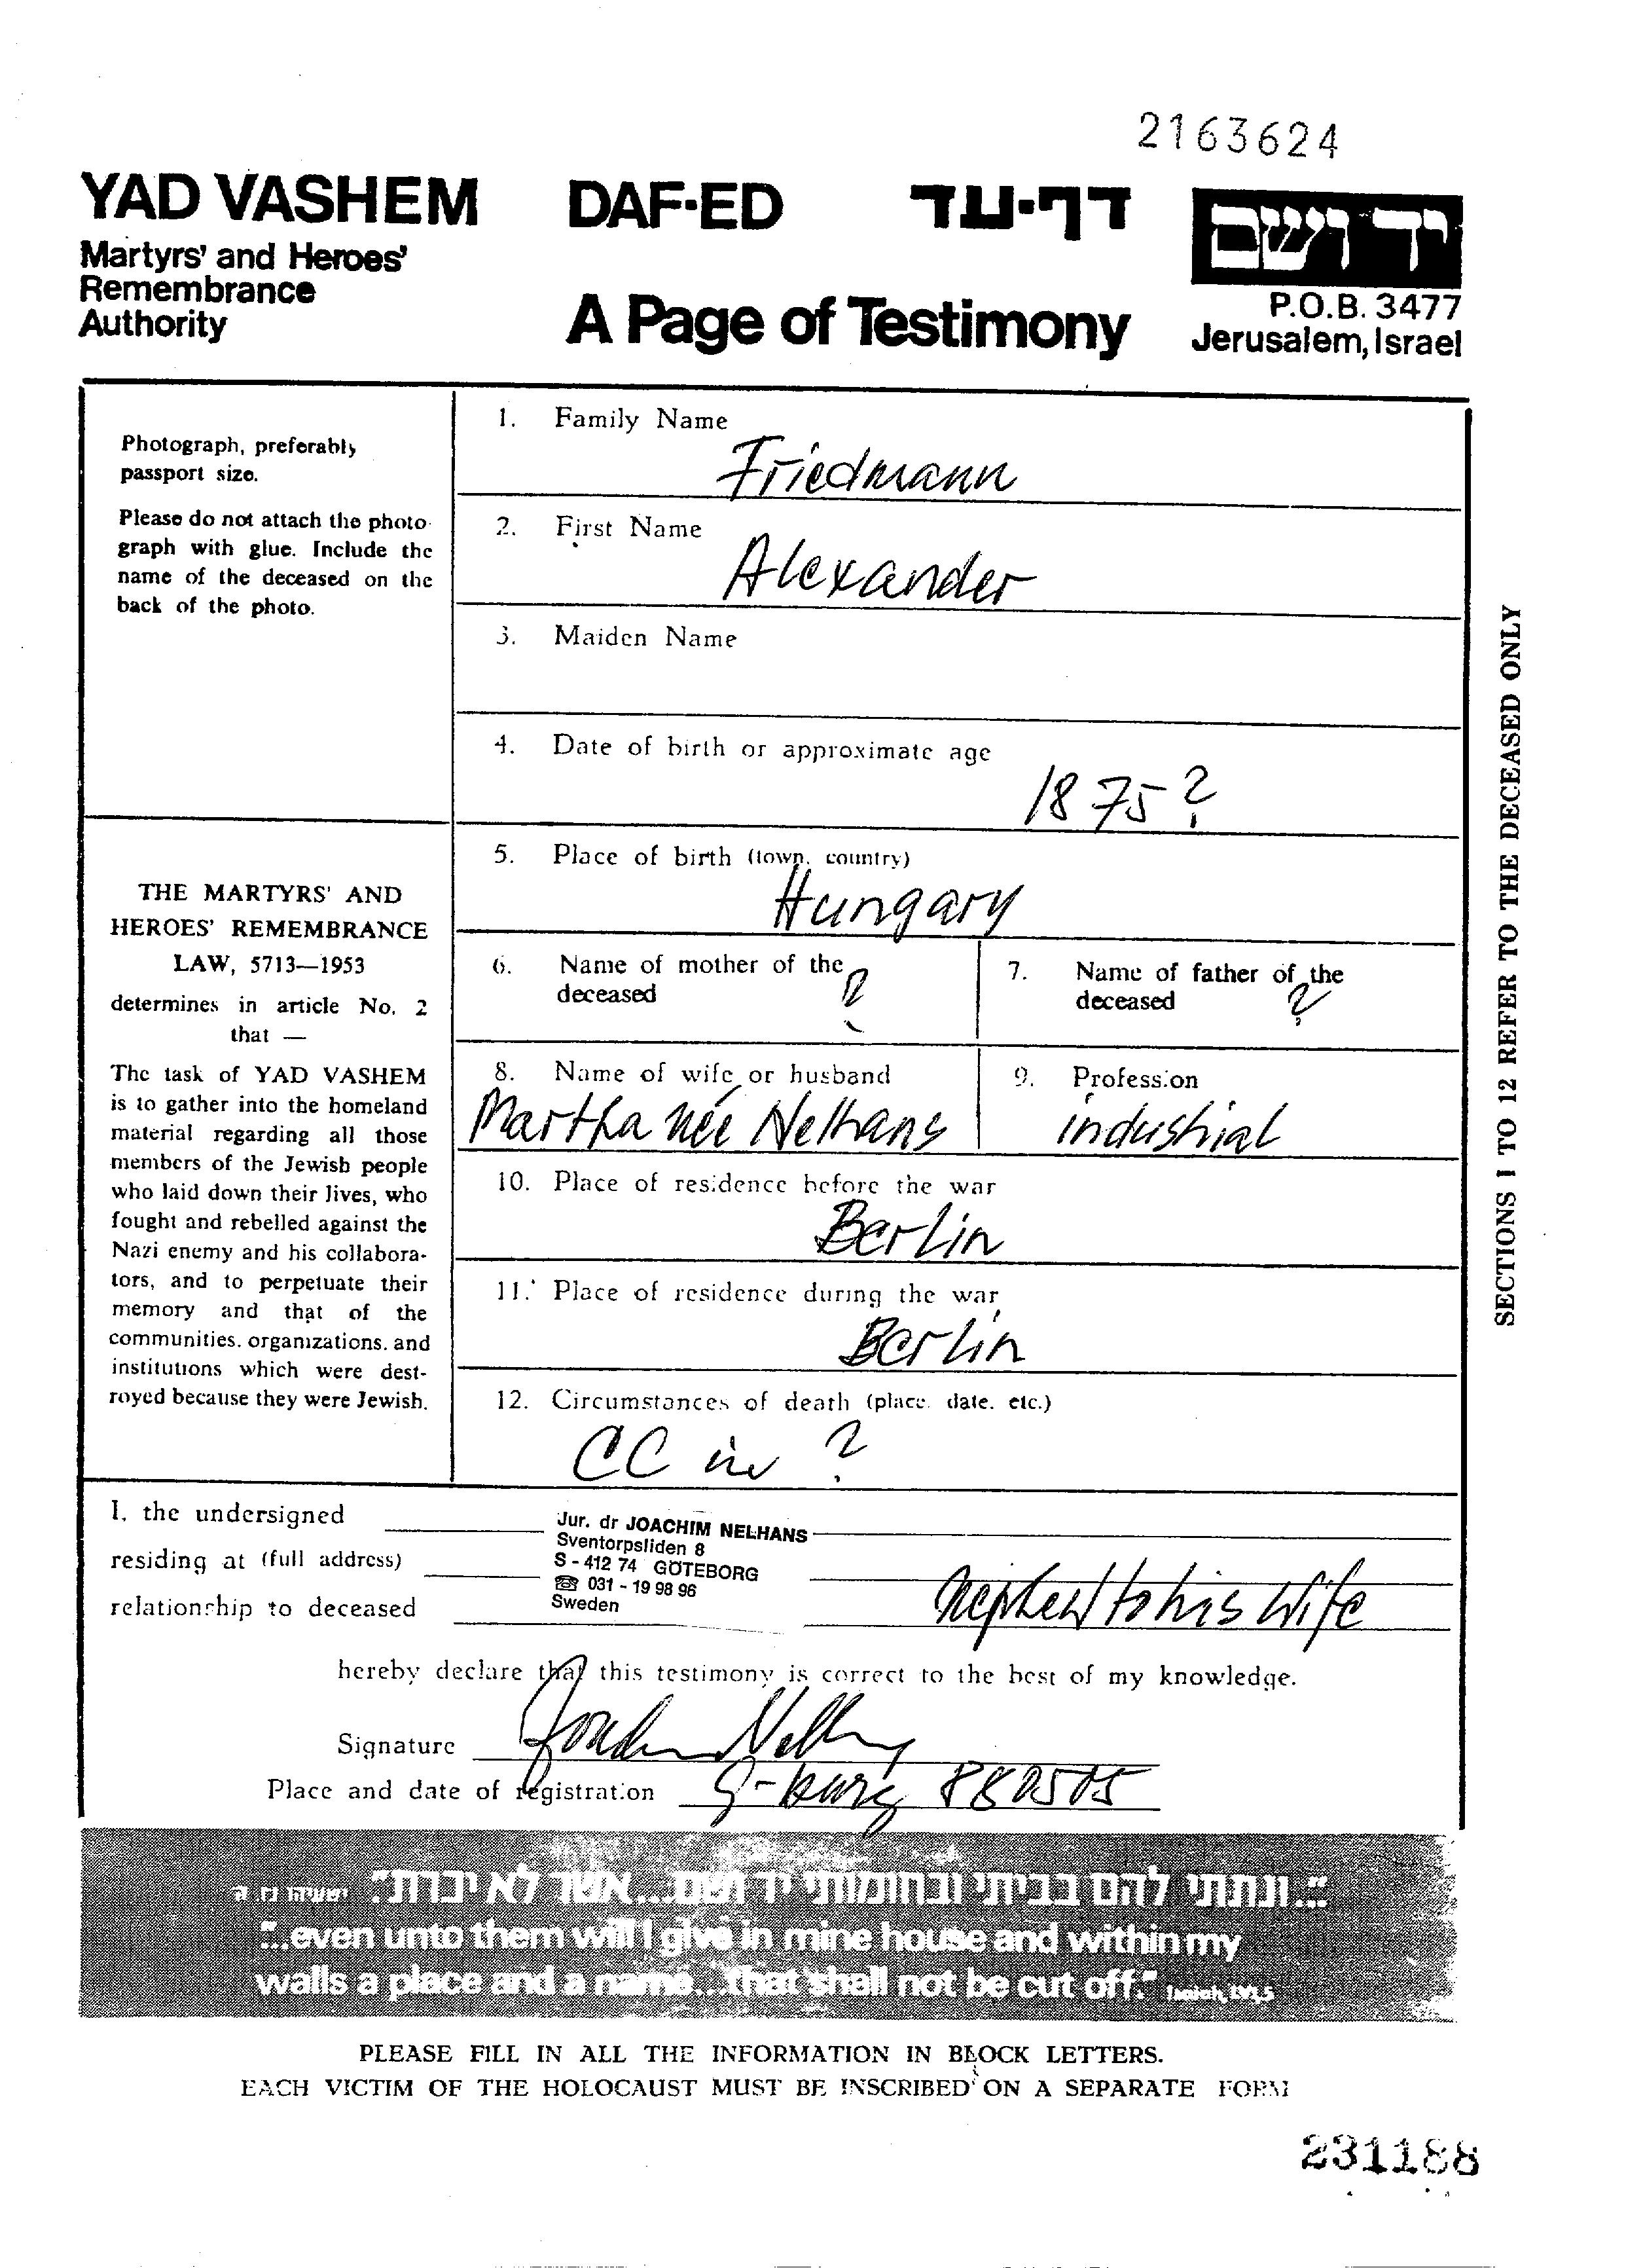 2163624
YAD VASHEM DAF-ED דף-עד יד ושם
Martyrs' and Heroes'
Remembrance
Authority
A Page of Testimony
P.O.B. 3477
Jerusalem, Israel
Photograph, preferably
passport size.
Please do not attach the photo-
graph with glue. Include the
name of the deceased on the
back of the photo.
THE MARTYRS' AND
HEROES' REMEMBRANCE
LAW, 5713—1953
determines in article No. 2
that —
The task of YAD VASHEM
is to gather into the homeland
material regarding all those
members of the Jewish people
who laid down their lives, who
fought and rebelled against the
Nazi enemy and his collabora-
tors, and to perpetuate their
memory and that of the
communities, organizations, and
institutions which were dest-
royed because they were Jewish.
1. Family Name
Friedmann
2. First Name
Alexander
3. Maiden Name
4. Date of birth or approximate age
1875?
5. Place of birth (town, country)
Hungary
6. Name of mother of the
deceased ?
7. Name of father of the
deceased ?
8. Name of wife or husband
Martha née Nelhans
9. Profession
industrial
10. Place of residence before the war
Berlin
11. Place of residence during the war
Berlin
12. Circumstances of death (place, date, etc.)
CC in ?
SECTIONS 1 TO 12 REFER TO THE DECEASED ONLY
I, the undersigned
residing at (full address)
relationship to deceased
Jur. dr JOACHIM NELHANS
Sventorpsliden 8
S - 412 74 GÖTEBORG
☎ 031 - 19 98 96
Sweden
nephew to his wife
hereby declare that this testimony is correct to the best of my knowledge.
Signature Joachim Nelhans
Place and date of registration G-burg 880505
"...ונתתי להם בביתי ובחומותי יד ושם...אשר לא יכרת" ישעיהו נו ה
"...even unto them will I give in mine house and within my
walls a place and a name...that shall not be cut off." Isaiah, LVI,5
PLEASE FILL IN ALL THE INFORMATION IN BLOCK LETTERS.
EACH VICTIM OF THE HOLOCAUST MUST BE INSCRIBED ON A SEPARATE FORM
231188